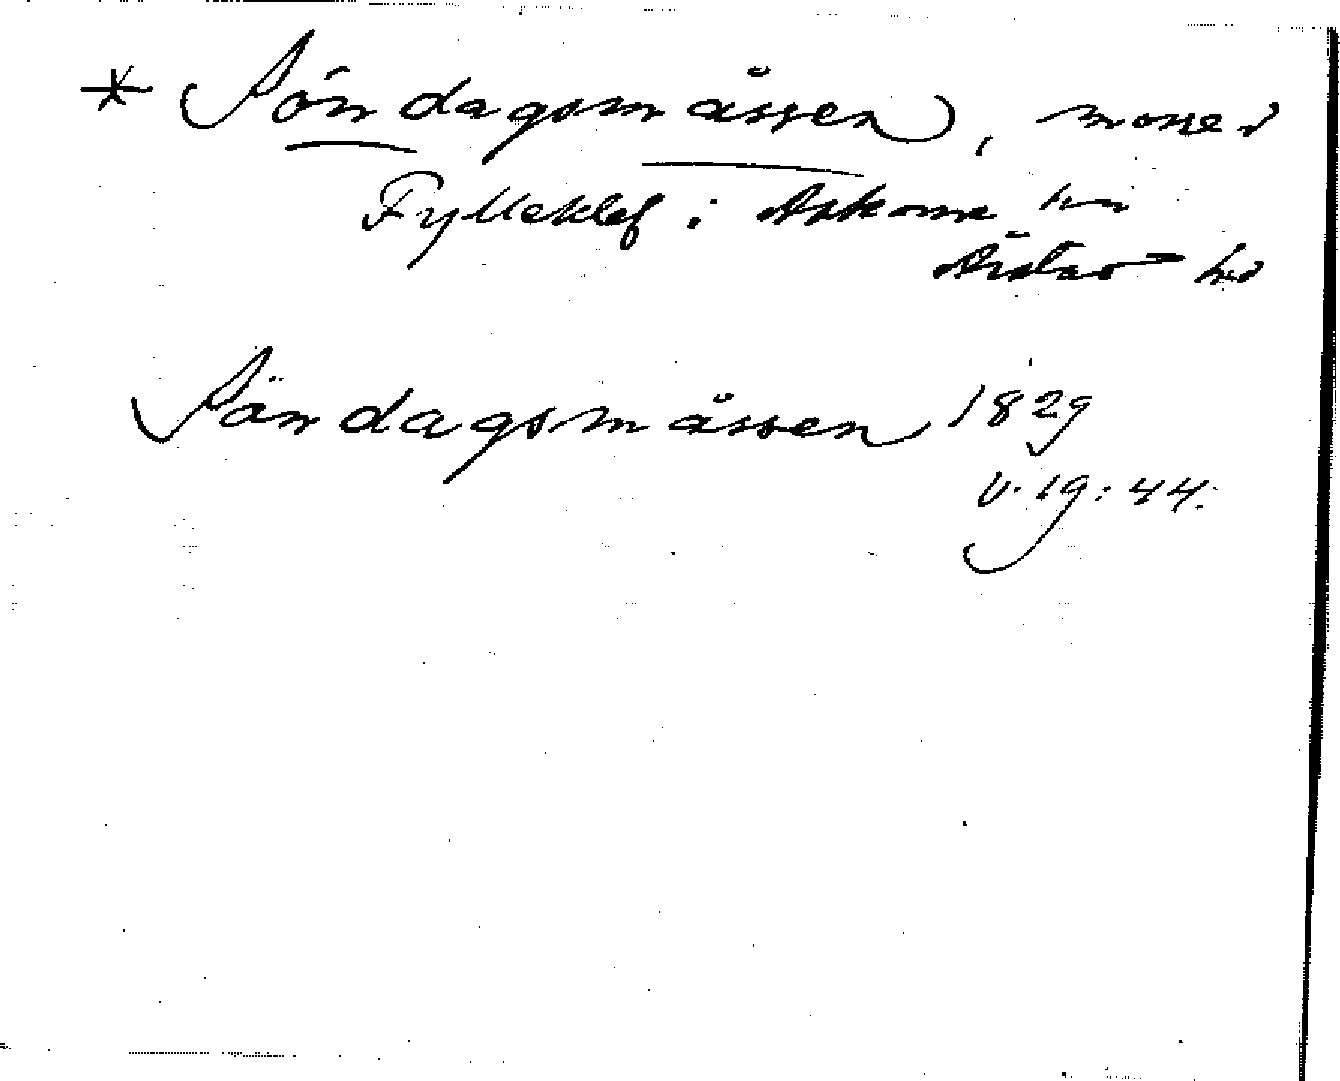 * Söndagsmåssen, mosse v
Fylleklef i Askome sn
Årstad hd
Söndagsmåssen 1829
V. 19: 44.